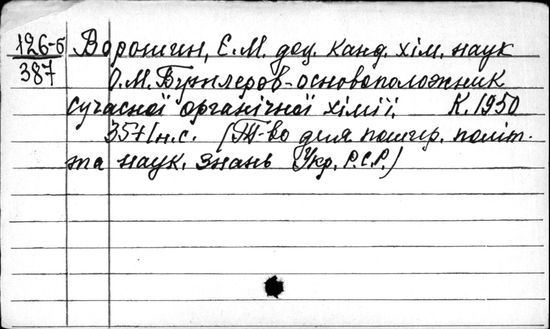 126-б Воронин, Е.М. доц. канд. хім. наук
387 О.М. Бутлеров - основоположник
сучасної органічної хімії. К. 1950
35+1 н.с. (Т-во для пошир. політ.
та наук. знань Укр. Р.С.Р.)